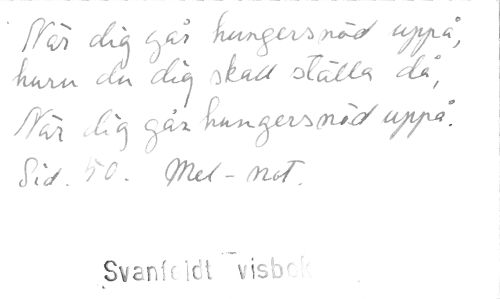 När dig går hungersnöd uppå,
huru du dig skall ställa då,
När dig går hungersnöd uppå.
Sid. 50. Mel-not.
Svanfeldt visbok